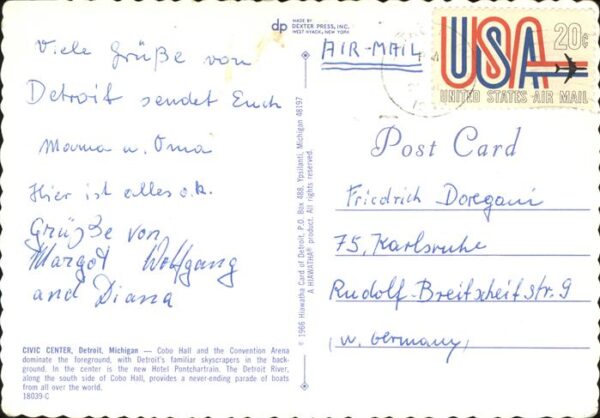 dp
MADE BY
DEXTER PRESS, INC.
WEST NYACK, NEW YORK
Viele Grüße von
Detroit sendet Euch
Mama u. Oma
Hier ist alles o.k.
Grüße von
Margot Wolfgang
and Diana
CIVIC CENTER, Detroit, Michigan — Cobo Hall and the Convention Arena
dominate the foreground, with Detroit's familiar skyscrapers in the back-
ground. In the center is the new Hotel Pontchartrain. The Detroit River,
along the south side of Cobo Hall, provides a never-ending parade of boats
from all over the world.
18039-C
© 1966 Hiawatha Card of Detroit, P.O. Box 488, Ypsilanti, Michigan 48197
A HIAWATHA® product. All rights reserved.
AIR-MAIL
USA 20c
UNITED STATES AIR MAIL
Post Card
Friedrich Doregani
75, Karlsruhe
Rudolf-Breitscheitstr. 9
(W. Germany)